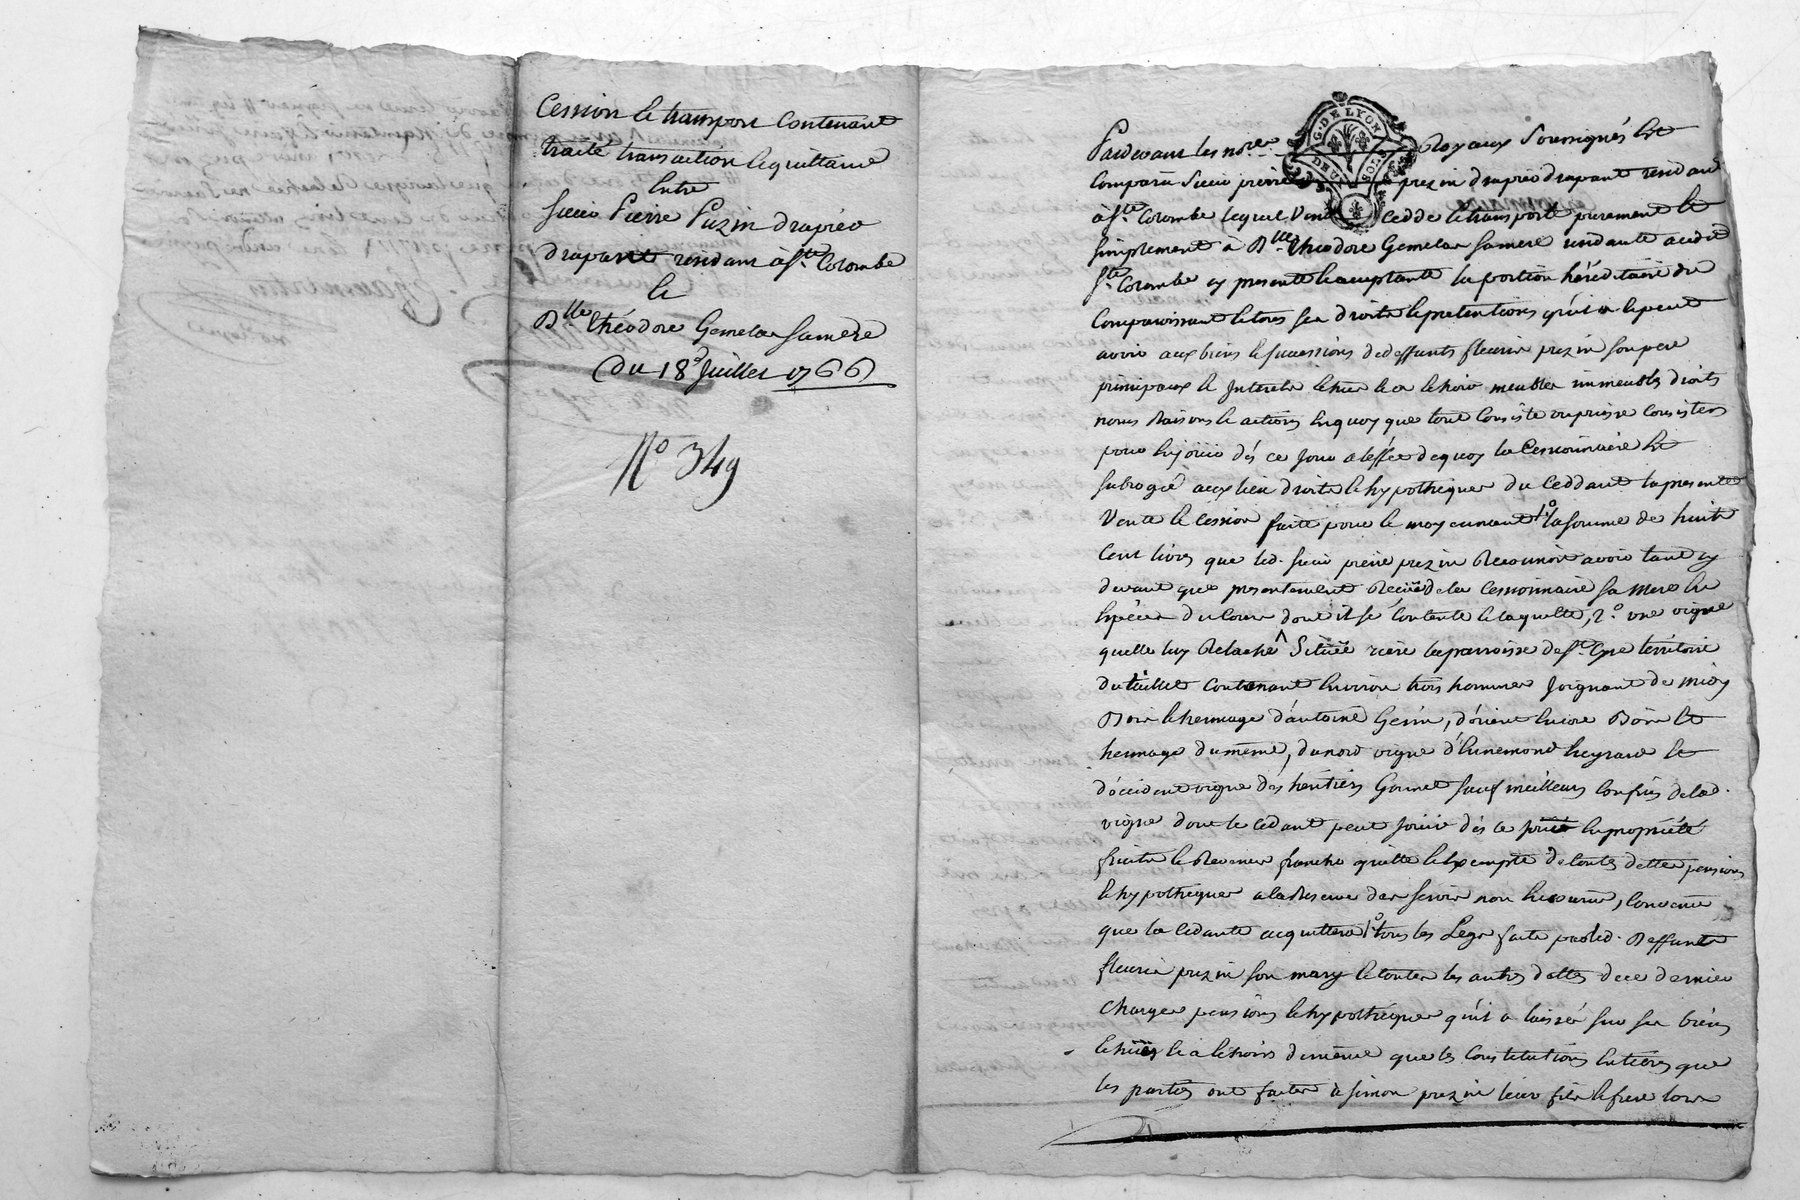 Cession & transport Contenant
traité transaction & quittance
Entre
Sieur Pierre Puzin drapier
drapant residant à Ste. Colombe
&
Dlle. théodore Gemelas sa mere
Du 18e Juillet 1766
No 349
G. DE LYON
DEUX SOLS
Pardevant les nores. Royaux Soussignés est
Comparu Sieur pierre prezin drapier drapant residant
à Ste. Colombe lequel Vend Cedde & transporte purement &
simplement a Dlle. théodore Gemelas sa mere residante audit
Ste. Colombe cy presente & acceptante la portion héréditaire du
Comparoissant & tous ses droits & pretentions qu'il a & peut
avoir aux biens & successions de deffunts fleurie prezin son pere
principaux & Interets meubles immeubles droits
noms Raisons & actions En quoy que tout Consiste ou puisse Consister
pour En jouir dés ce jour a l'effet de quoy la Cessionnaire Est
subrogée aux lieu droits & hypotheques du Ceddant la presente
Vente & Cession faite pour & moyennant 1o la somme de huit
Cent livres que led. sieur pierre prezin Reconnoit avoir tant cy
devant que presentement Reçüe de la Cessionnaire sa mere En
Espéces du Cours dont il se Contente & la quitte, 2o. une vigne
quelle luy Relache Située riere la parroisse de St. Cyr territoire
du tuillet Contenant Environ trois hommes Joignant de midy
Bois & hermage d'antoine Gerin, d'orient Encore Bois &
hermage du même, du nord vigne d'Ennemond heyraud &
d'occident vigne des heritiers Gonnet sauf meilleurs Confins de lad.
vigne dont le Cedant peut jouir dés ce jour En propriété
fruits & Revenus franche quitte & Exempte de toutes dettes pensions
& hypotheques a la Reserve des servis non Encourus, Convenu
que la Cedante acquittera 1o tous les Legs faits par led. Deffunt
fleurie prezin son mary & toutes les autres dettes de ce dernier
Charges pensions & hypotheques qu'il a laissé sur ses biens
de même que les Constitutions Entieres que
les parties ont faites à simon prezin leur fils & frere lors